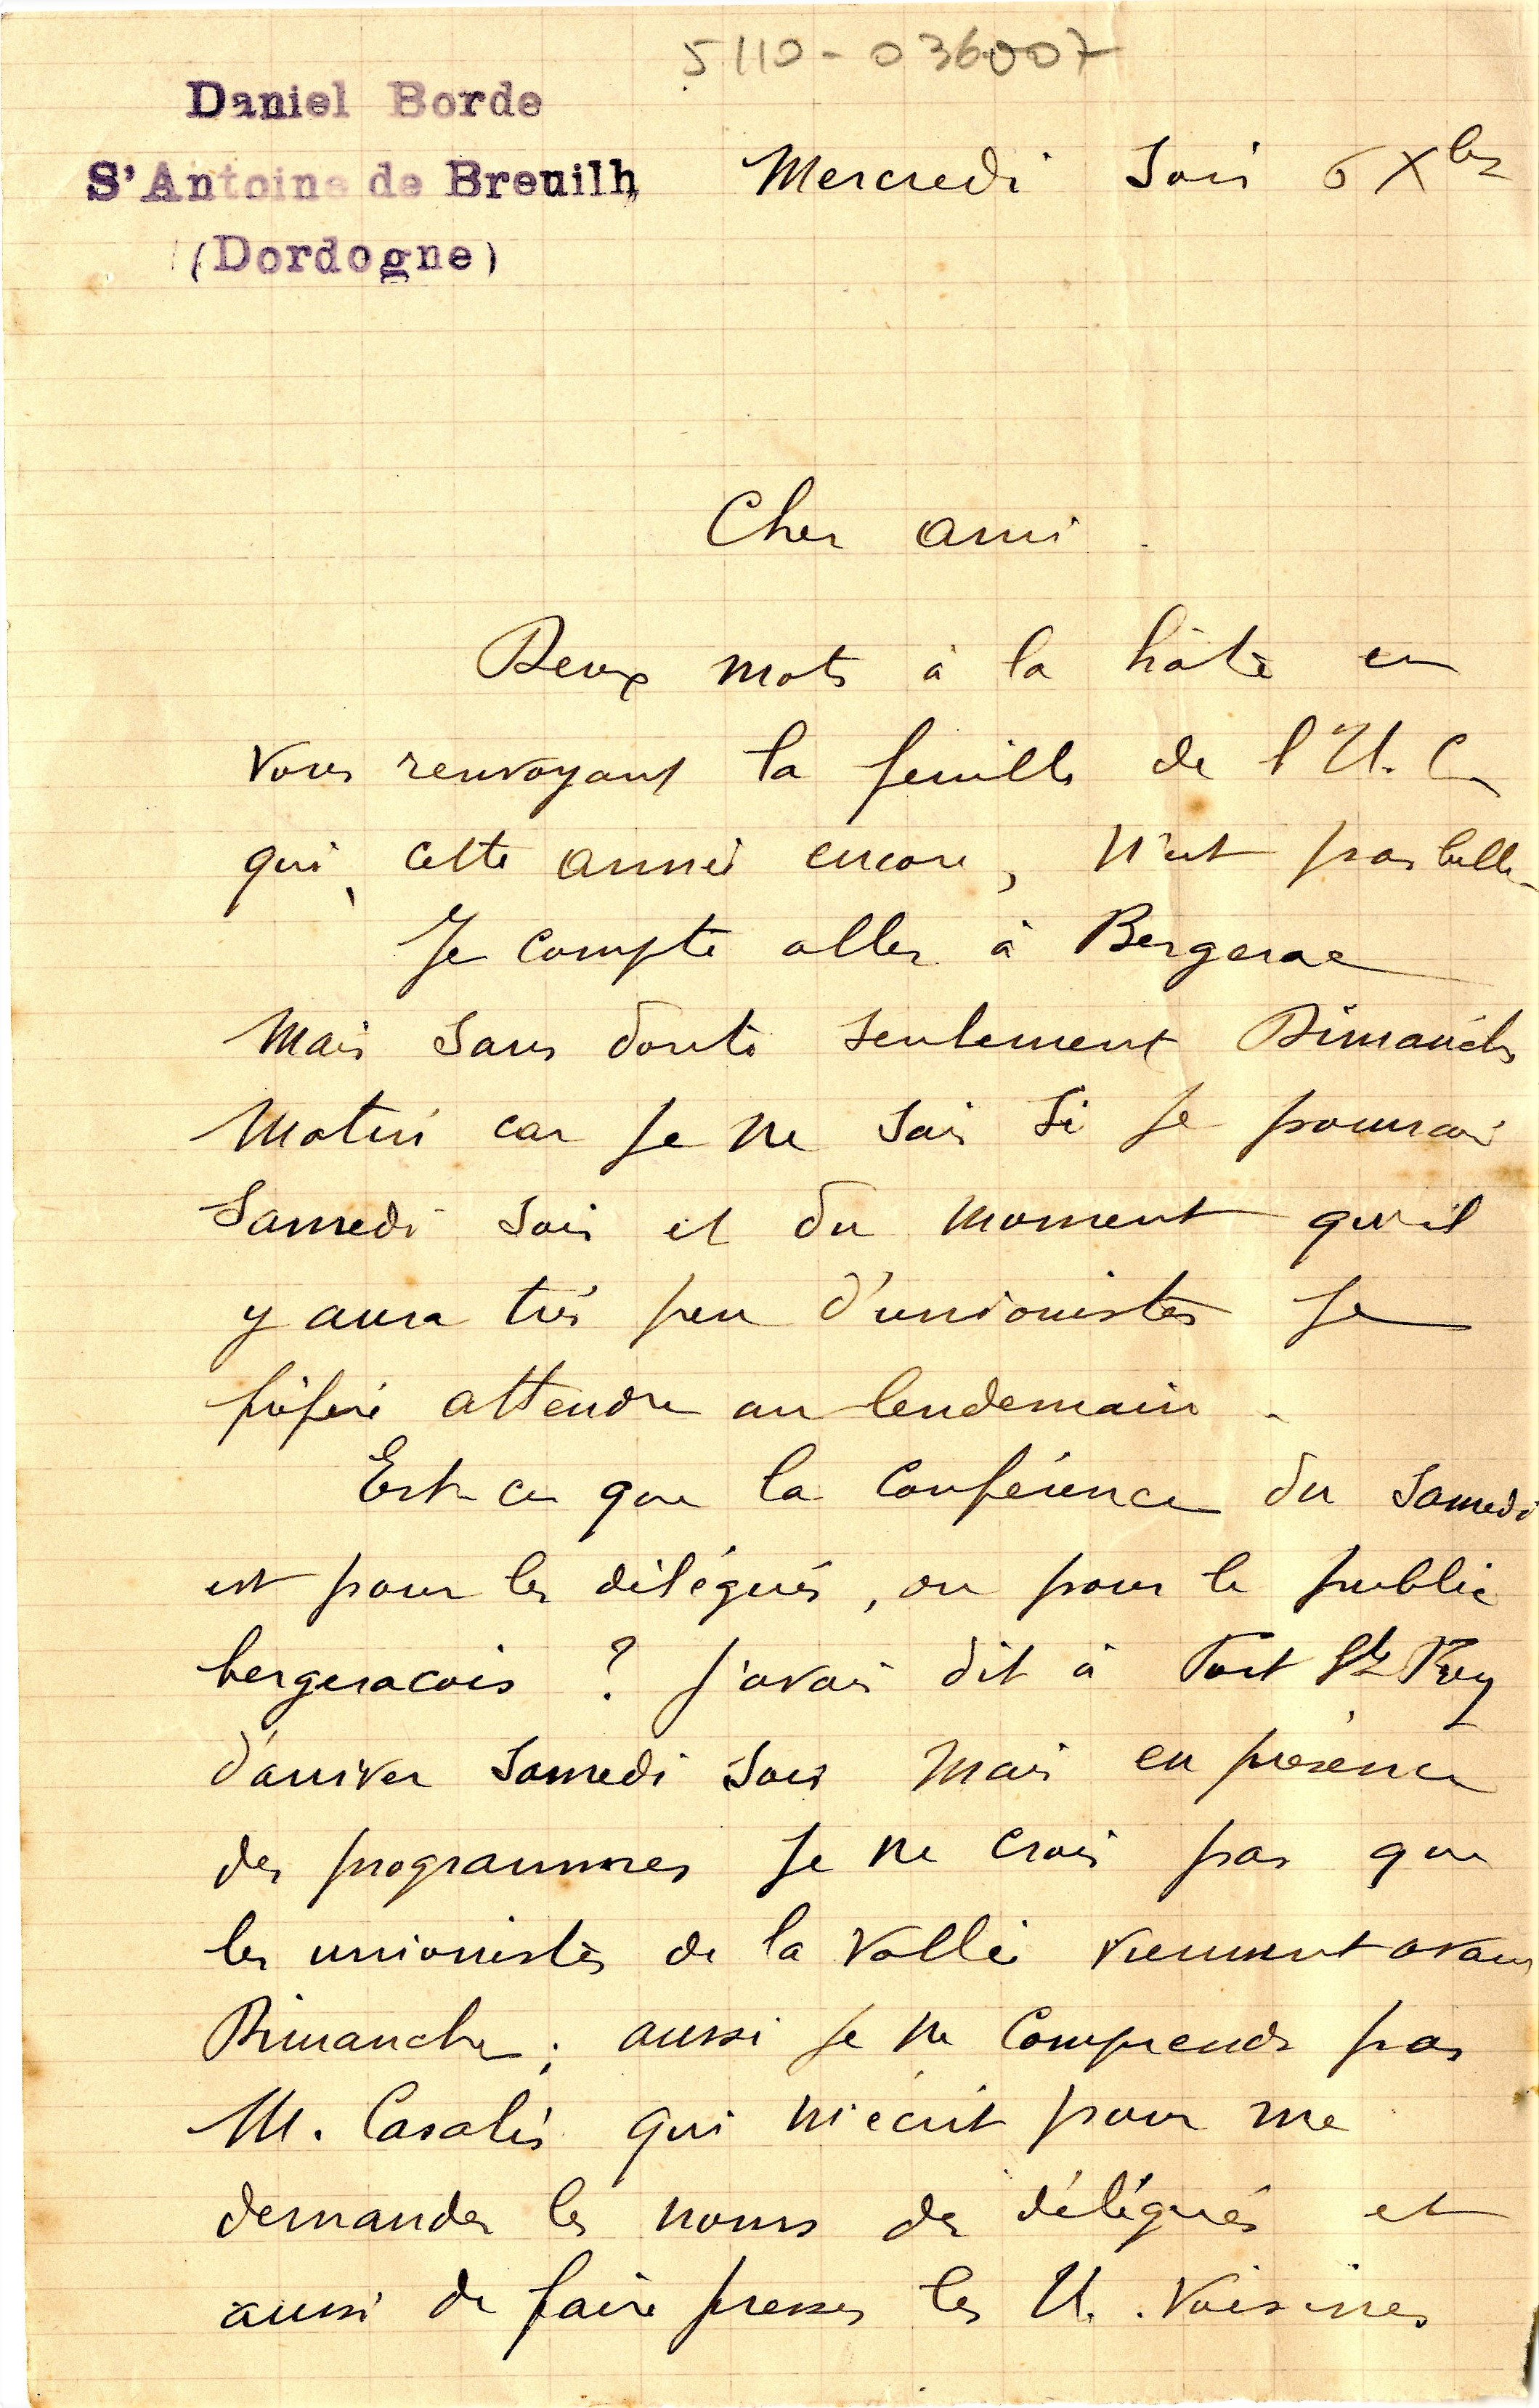 5110-036007
Daniel Borde
S'Antoine de Breuilh
(Dordogne)
Mercredi soir 6 Xbre
Cher ami.
Deux mots à la hâte en
vous renvoyant la feuille de l'U.C
qui, cette année encore, n'est pas belle.
Je compte aller à Bergerac
mais sans doute seulement Dimanche
matin car je ne sais si je pourrai
Samedi soir et du moment qu'il
y aura très peu d'unionistes je
préfère attendre au lendemain.
Est-ce que la conférence du samedi
est pour les délégués, ou pour le public
bergeracois ? J'avais dit à Port Ste Foy
d'arriver samedi soir mais en présence
des programmes je ne crois pas que
les unionistes de la vallée viennent avant
Dimanche; aussi je ne comprends pas
M. Casalis qui m'écrit pour me
demander les noms des délégués et
aussi de faire presser les U. voisines